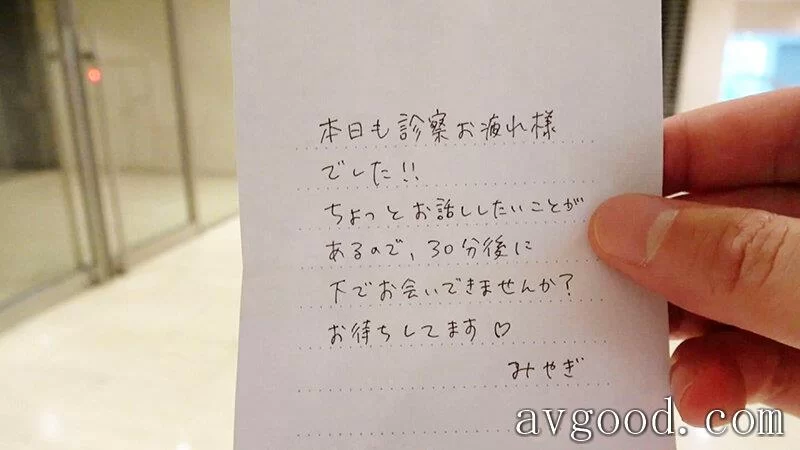 本日も診察お疲れ様
でした!!
ちょっとお話ししたいことが
あるので、30分後に
下でお会いできませんか?
お待ちしてます♡
みやぎ
avgood.com